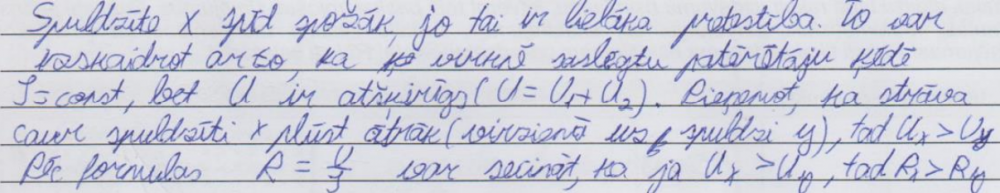 Spuldzīte x spīd spožāk, jo tai ir lielāka pretestība. To var
izskaidrot ar to, ka virknē saslēgtu patērētāju ķēdē
I=const, bet U ir atšķirīgs (U = U₁+U₂). Pieņemot, ka strāva
caur spuldzīti x plūst ātrāk (virzienā uz spuldzi y), tad Uₓ > Uᵧ
Pēc formulas R = U/I var secināt, ka ja Uₓ > Uᵧ, tad Rₓ > Rᵧ